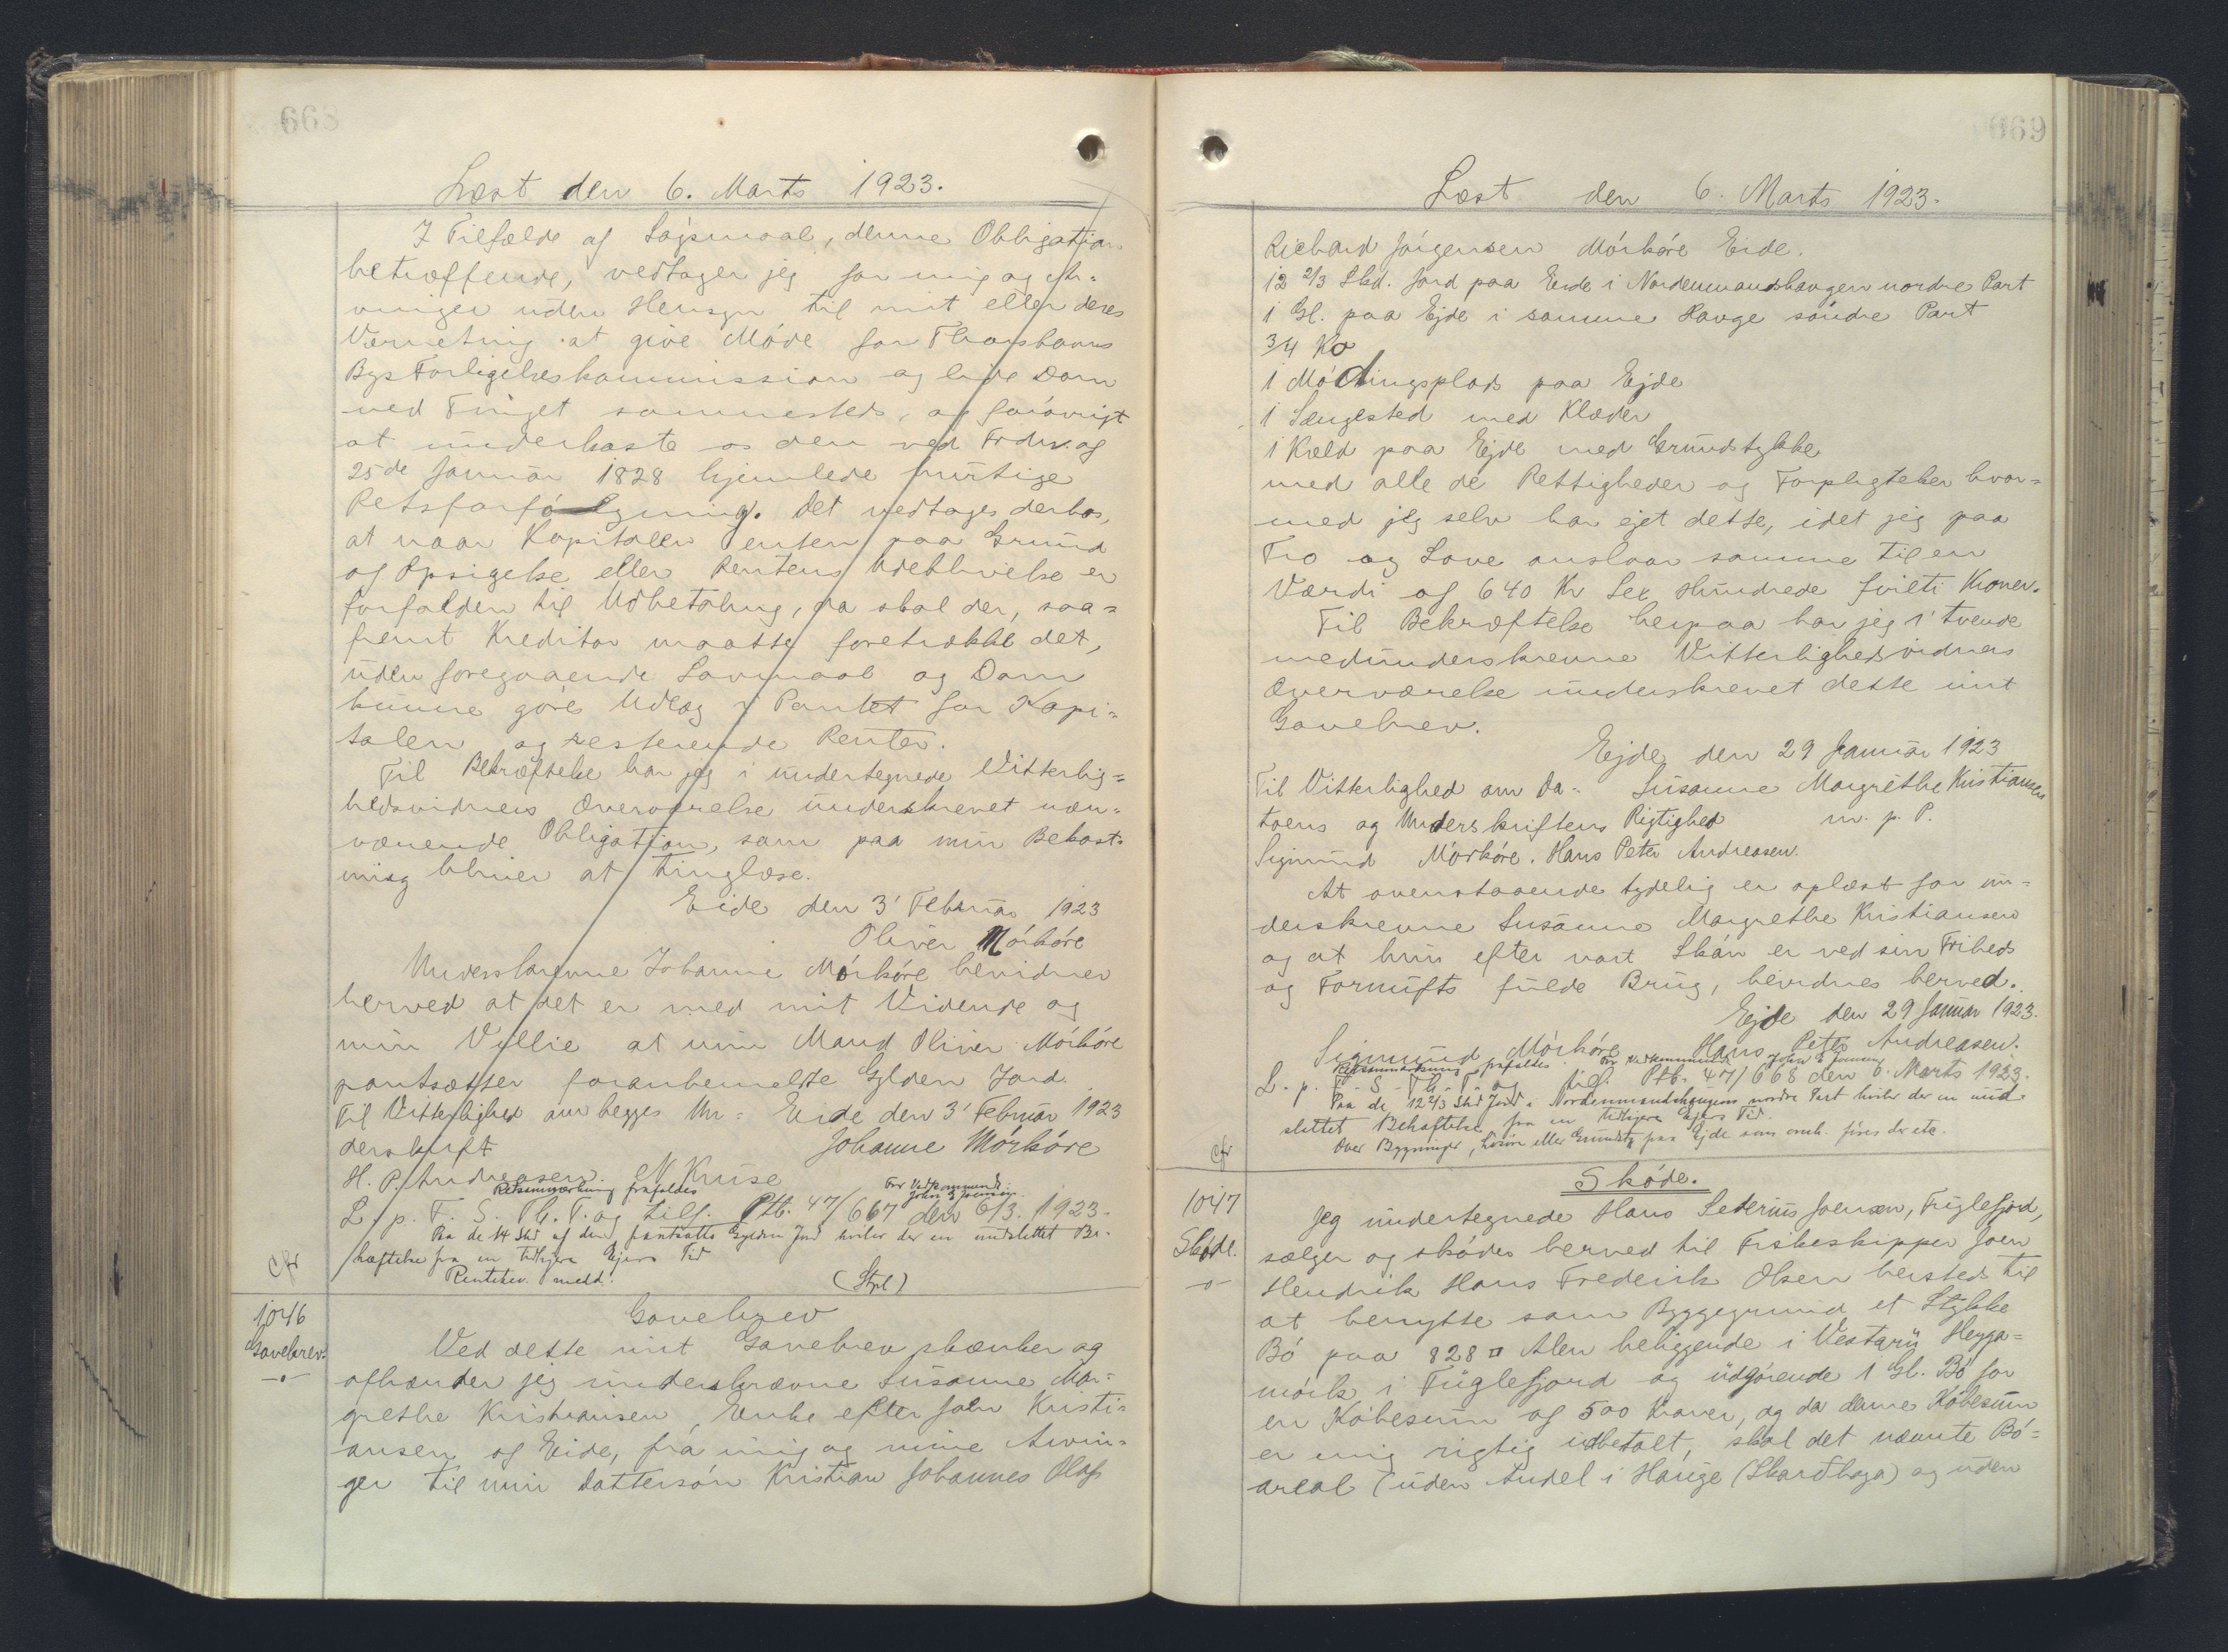 668
Læst den 6. Marts 1923.
I Tilfælde af Søgsmaal, denne Obligation
betræffende, vedtager jeg for mig og Ar-
vinger uden Hensyn til mit eller deres
Værneting at give Møde for Thorshavns
Bys Forligelseskommission og lide Dom
ved Tinget sammesteds, og forøvrigt
at underkaste os den ved Frdn. af
25de Januar 1828 hjemlede hurtige
Retsforfølgning. Det vedtages derhos,
at naar Kapitalen enten paa Grund
af Opsigelse eller Rentens Udeblivelse er
forfalden til Udbetaling, da skal der, saa=
fremt Kreditor maatte foretrække det,
uden foregaaende Lovmaal og Dom
kunne göre Udlæg i Pantet for Kapi=
talen og resterende Renter.
Til Bekræftelse har jeg i undertegnede Vitterlig=
hedsvidners Overværelse underskrevet nær-
værende Obligation, som paa min Bekost-
ning bliver at tinglæse.
Eide den 3' Februar 1923
Oliver Mórkóre
Underskrevne Johanne Mórkóre bevidner
herved at det er med mit Vidende og
min Villie at min Mand Oliver Mórkóre
pantsætter foranbemeldte Gylden Jord.
Til Vitterlighed om begges Un= Eide den 3' Februar 1923
derskrift Johanne Mórkóre
H. P. Andreasen. M Kruse
Retsanmærkning frafaldes For Vedkommende: John E Joensen
L. p. F. S. Th. T. og tilf. Ptb. 47/667 den 6/3. 1923.
Paa de 14 Skd af den pantsatte Gylden Jord hviler der en uudslettet Be-
hæftelse fra en tidligere Ejers Tid
Cfr Rentebev. medd. (Stpl)
1046 Gavebrev
Gavebrev. Ved dette mit Gavebrev skænker og
afhænder jeg underskrevne Susanne Mar-
grethe Kristiansen, Enke efter John Kristi-
ansen af Eide, fra mig og mine Arvin-
ger til min Dattersön Kristian Johannes Olaf
669
Læst den 6. Marts 1923.
Richard Jörgensen Mórkóre Eide.
12 2/3 Skd. Jord paa Eide i Nordenmandshaugen nordre Part
1 Gl. paa Ejde i samme Hauge söndre Part
3/4 Ko
1 Mödingsplads paa Ejde
1 Sengested med Klæder
1 Kæld paa Ejde med Grundstykke
med alle de Rettigheder og Forpligtelser hvor=
med jeg selv har ejet dette, idet jeg paa
Tro og Love anslaar samme til en
Værdi af 640 Kr Sex Hundrede firti Kroner.
Til Bekræftelse herpaa har jeg i tvende
medunderskrevne Vitterlighedsvidners
Overværelse underskrevet dette mit
Gavebrev.
Ejde den 29 Januar 1923
Til Vitterlighed om Da= Susanne Margrethe Kristiansen
toens og Underskriftens Rigtighed m. p. P.
Sigmund Mórkóre. Hans Peter Andreasen.
At ovenstaaende tydelig er oplæst for un=
derskrevne Susanne Margrethe Kristiansen
og at hun efter vort Skön er ved sin Friheds
og Fornufts fulde Brug, bevidnes herved.
Ejde den 29 Januar 1923.
Sigmund Mórkóre Hans Peter Andreasen.
Retsanmærkning frafaldes For Vedkommende John E Joensen
L. p. F. S. Th. T. og tilf. Ptb. 47/668 den 6. Marts 1923.
Paa de 12 2/3 Skd Jord i Nordenmandshaugens nordre Part hviler der en uud-
slettet Behæftelse fra en tidligere Ejers Tid.
Cfr Over Bygninger, Lösöre eller Grundst. paa Ejde som omh. föres der ete.
Sköde.
1047 Jeg undertegnede Hans Severius Joensen, Fuglefjord,
Sköde. sælger og sköder herved til Fiskeskipper Joen
Hendrik Hans Frederik Olsen hersteds til
at benytte som Byggegrund et Stykke
Bö paa 828 □ Alen beliggende i Vestaru Heyga=
mörk i Fuglefjord og udgörende 1 Gl. Bö for
en Köbesum af 500 Kroner, og da denne Köbesum
er mig rigtig udbetalt, skal det nævnte Bö=
areal (uden Andel i Hauge (Skarðhaga) og uden